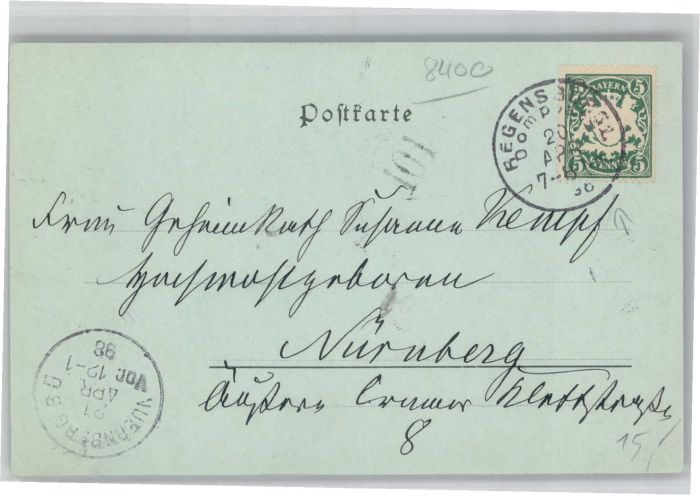 8400
Postkarte
BAYERN
5 5
5 5
PFENNIG
REGENSBURG
Dompl.
20
APR
7-8
98
101
Frau Geheimrath Susanna Kempf
Hochwohlgeboren
Nürnberg
Äußere Cramer Klettstraße
8
NUERNBERG 8 O
21
APR
Vor. 12-1
98
15/